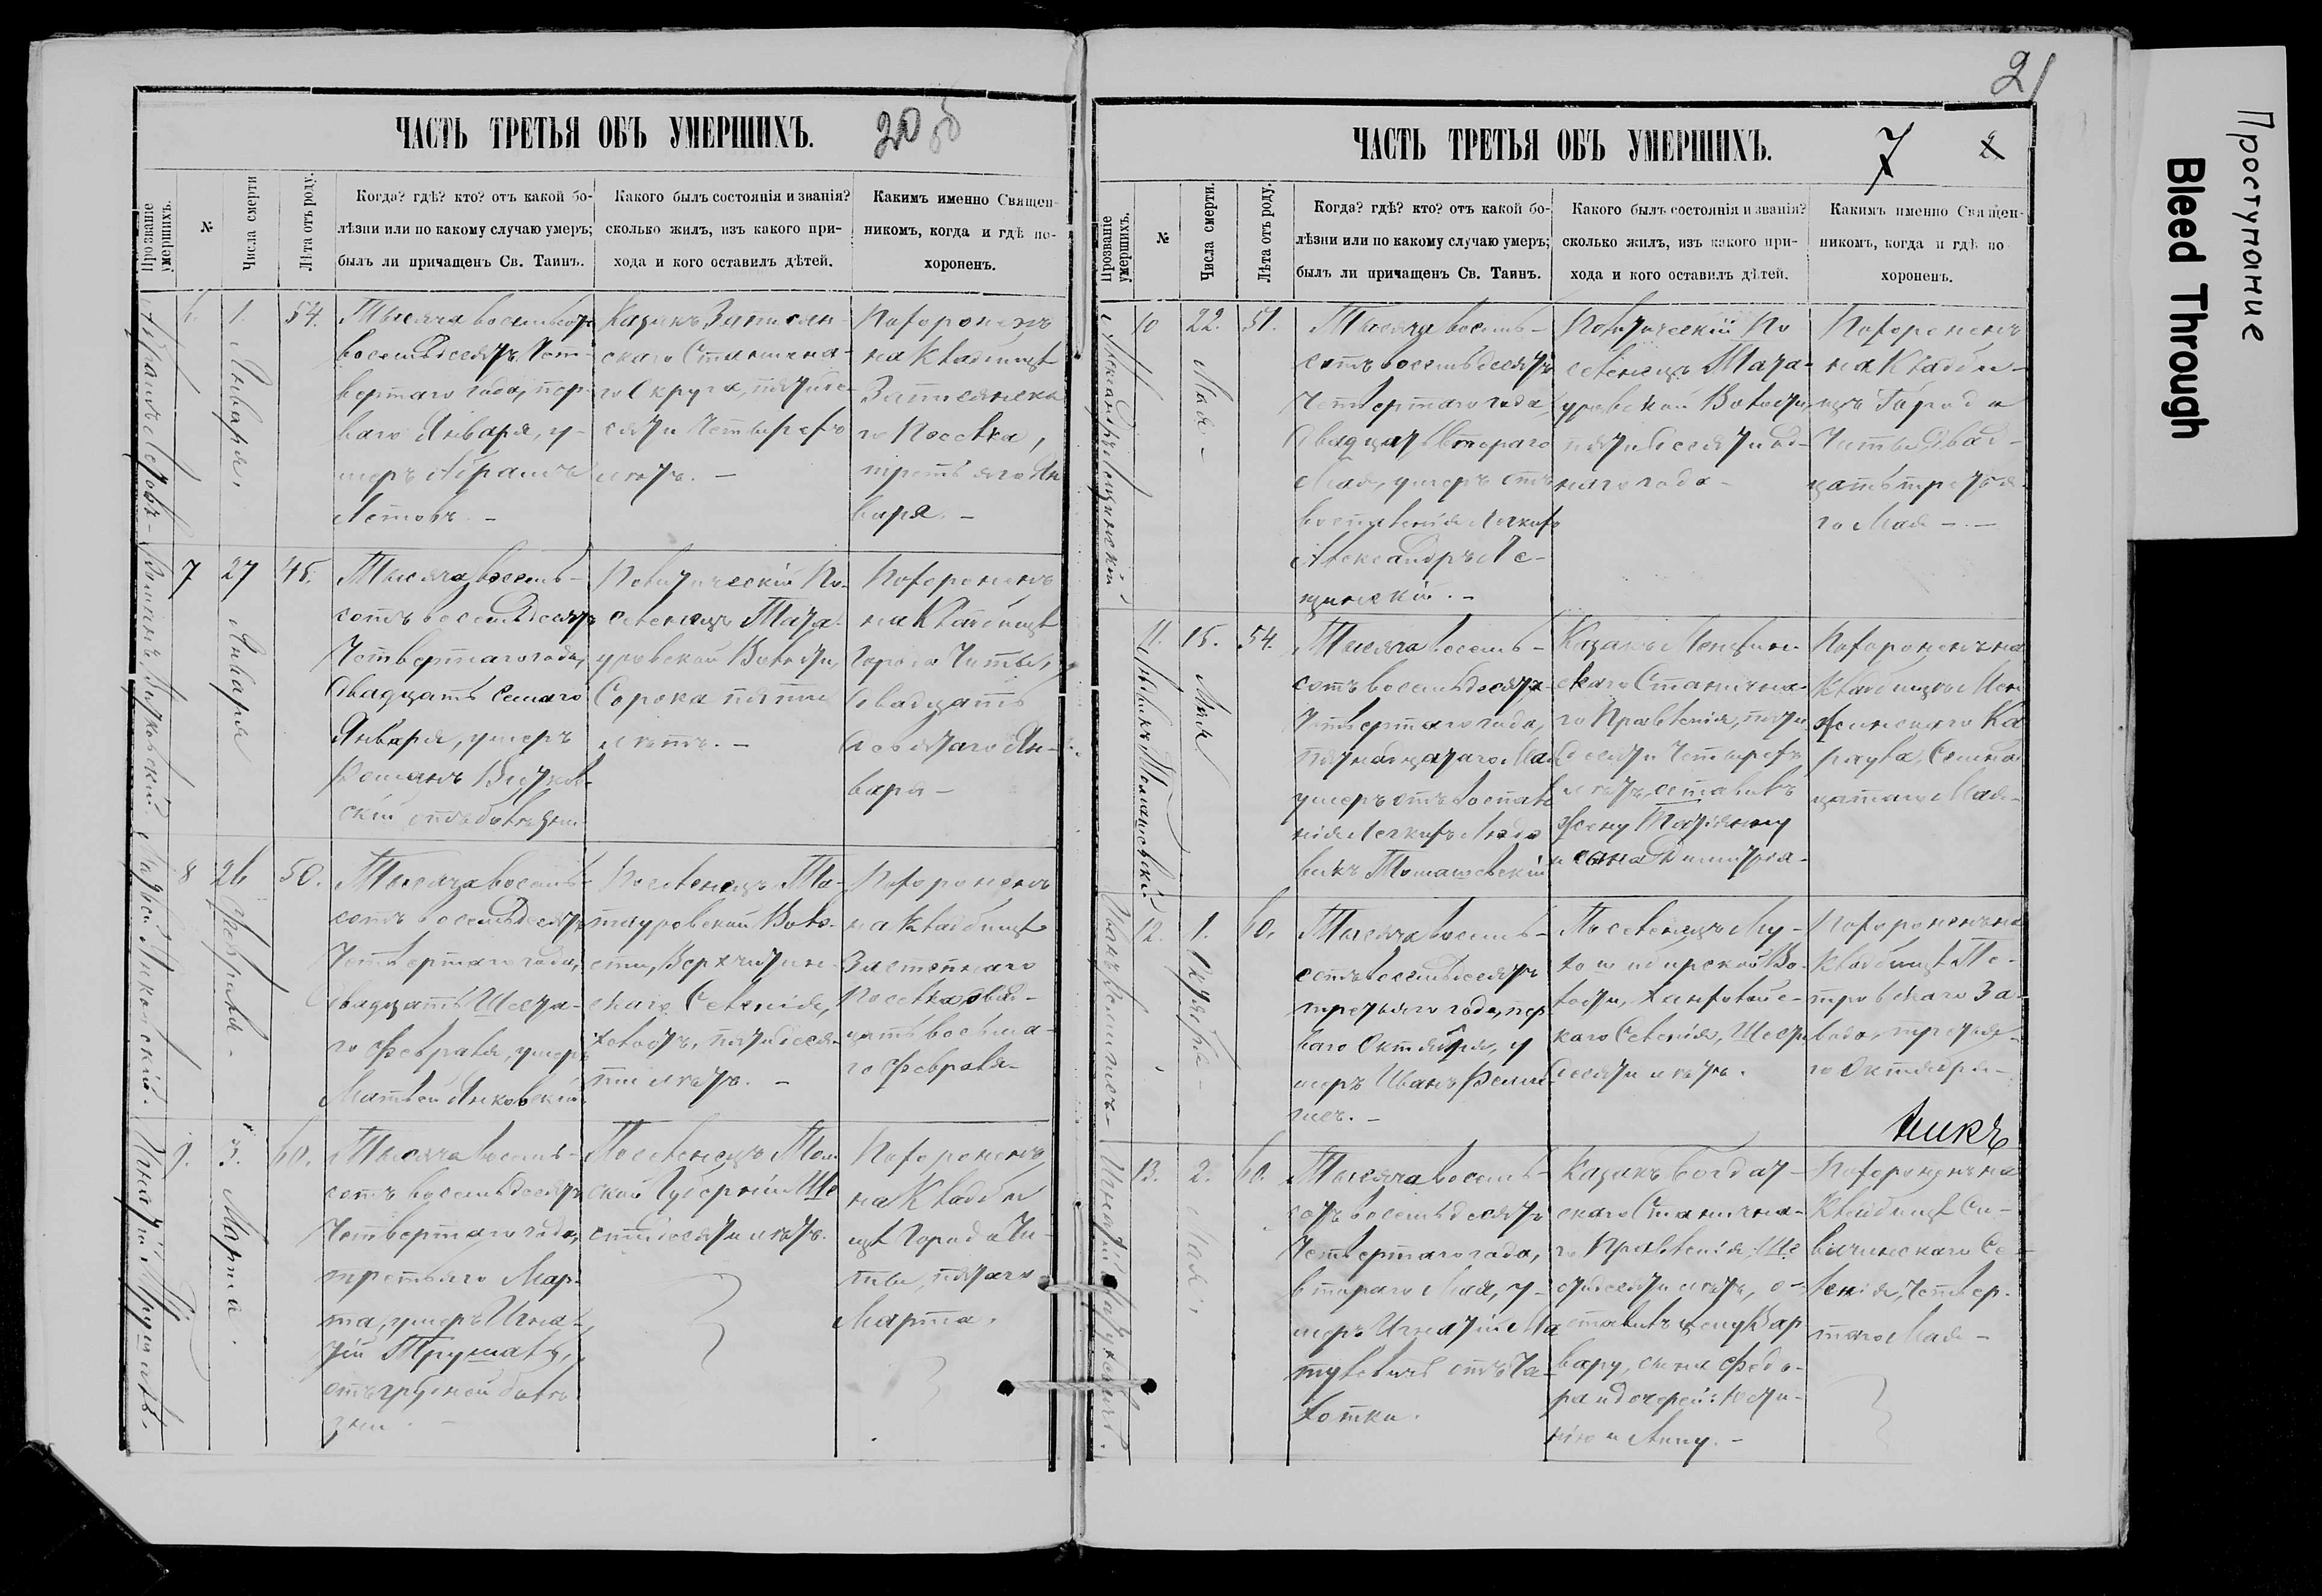 21
ЧАСТЬ ТРЕТЬЯ ОБЪ УМЕРШИХЪ.
20 об
Прозваніе умершихъ.
№
Числа смерти
Лѣта отъ роду.
Когда? гдѣ? кто? отъ какой бо-
лѣзни или по какому случаю умеръ;
былъ ли причащенъ Св. Таинъ.
Какого былъ состоянія и званія?
сколько жилъ, изъ какого при-
хода и кого оставилъ дѣтей.
Какимъ именно Священ-
никомъ, когда и гдѣ по-
хороненъ.
6.
1.
Января.
54.
вертаго года, пер-
ваго Января, у-
меръ Абрамъ
скаго Станична-
го Округа, пятьде-
сяти Четырехъ
лѣтъ. –
Похороненъ
на Кладбищѣ
го Поселка,
третьяго Ян
варя. –
7
27
Января
45.
Тысяча восемь-
сотъ восемьдесятъ
Четвертаго года,
двадцать Семаго
Января, умеръ
Политическій По-
селенецъ Тата-
уровской Волости,
Сорока пяти
лѣтъ. –
Похороненъ
на Кладбищѣ
Города Читы,
двадцать
девятаго Ян-
варя –
8
26
Февраля.
50.
Тысяча восемь-
сотъ восемьдесятъ
Четвертаго года,
двадцать Шеста-
го Февраля, умеръ
Матвей Янковскій
Поселенецъ Та-
тауровской Воло-
сти, Верхчитин-
скаго Селенія,
холостъ, пятидеся-
ти лѣтъ. –
Похороненъ
на Кладбищѣ
Застепнаго
Поселка двад-
цать восьма-
го Февраля –
9.
3.
Марта.
60.
Тысяча восемь-
сотъ восемьдесятъ
Четвертаго года,
третьяго Мар-
та, умеръ Игна-
тій
отъ грудной болѣ-
зни. –
Поселенецъ Том-
ской Губерніи Ше
стидесяти лѣтъ.
Похороненъ
на Кладби
щѣ Города Чи-
ты, пятаго
Марта.
ЧАСТЬ ТРЕТЬЯ ОБЪ УМЕРШИХЪ.
7
Прозваніе умершихъ.
№
Числа смерти.
Лѣта отъ роду.
Когда? гдѣ? кто? отъ какой бо-
лѣзни или по какому случаю умеръ;
былъ ли причащенъ Св. Таинъ.
Какого былъ состоянія и званія?
сколько жилъ, изъ какого при-
хода и кого оставилъ дѣтей.
Какимъ именно Священ-
никомъ, когда и гдѣ по-
хороненъ.
10
22.
Мая –
51.
Тысяча восемь-
сотъ восемьдесятъ
Четвертаго года
двадцать втораго
Мая, умеръ отъ
воспаленія легкихъ
Александръ Ле-
щинскій. –
Политическій По
селенецъ Тата-
уровской Волости,
пятидесяти од-
ного года –
Похороненъ
на Кладби-
щѣ Города
Читы двад-
цать третья-
го Мая –
11.
15.
Мая
54.
Тысяча восемь-
сотъ восемьдесятъ
Четвертаго года,
Пятнадцатаго Мая
умеръ отъ воспале
нія легкихъ Людо
викъ Томашевскій
скаго Станична-
го Правленія, пяти
десяти Четырехъ
лѣтъ, оставилъ
жену Татьянну
и сына Димитрія –
Похороненъ на
Кладбищѣ Мен
женскаго Ка
раула, Семнад
цатаго Мая –
12.
1.
Октября –
60.
Тысяча восемь-
сотъ восемьдесятъ
третьяго года, пер
ваго Октября, у
меръ Иванъ
Поселенецъ Му-
хошибирской Во-
лости,
каго Селенія, Шести
десяти лѣтъ.
Похороненъ на
Кладбищѣ Пе-
тровскаго За-
вода, третья-
го Октября –
13.
2.
Мая.
60.
Тысяча восемь-
сотъ восемьдесятъ
Четвертаго года,
втораго Мая, у-
меръ Игнатій Ма
тулевичъ отъ Ча-
хотки.
Казакъ Богдат-
скаго Станична-
го Правленія, Ше
стидесяти лѣтъ, о-
ставилъ жену Вар
вару, сына Федо-
ра и дочерей: Юсти-
нію и Анну. –
Похороненъ на
Кладбищѣ Си-
вачинскаго Се-
ленія, Четвер-
таго Мая –
Проступание
Bleed Through